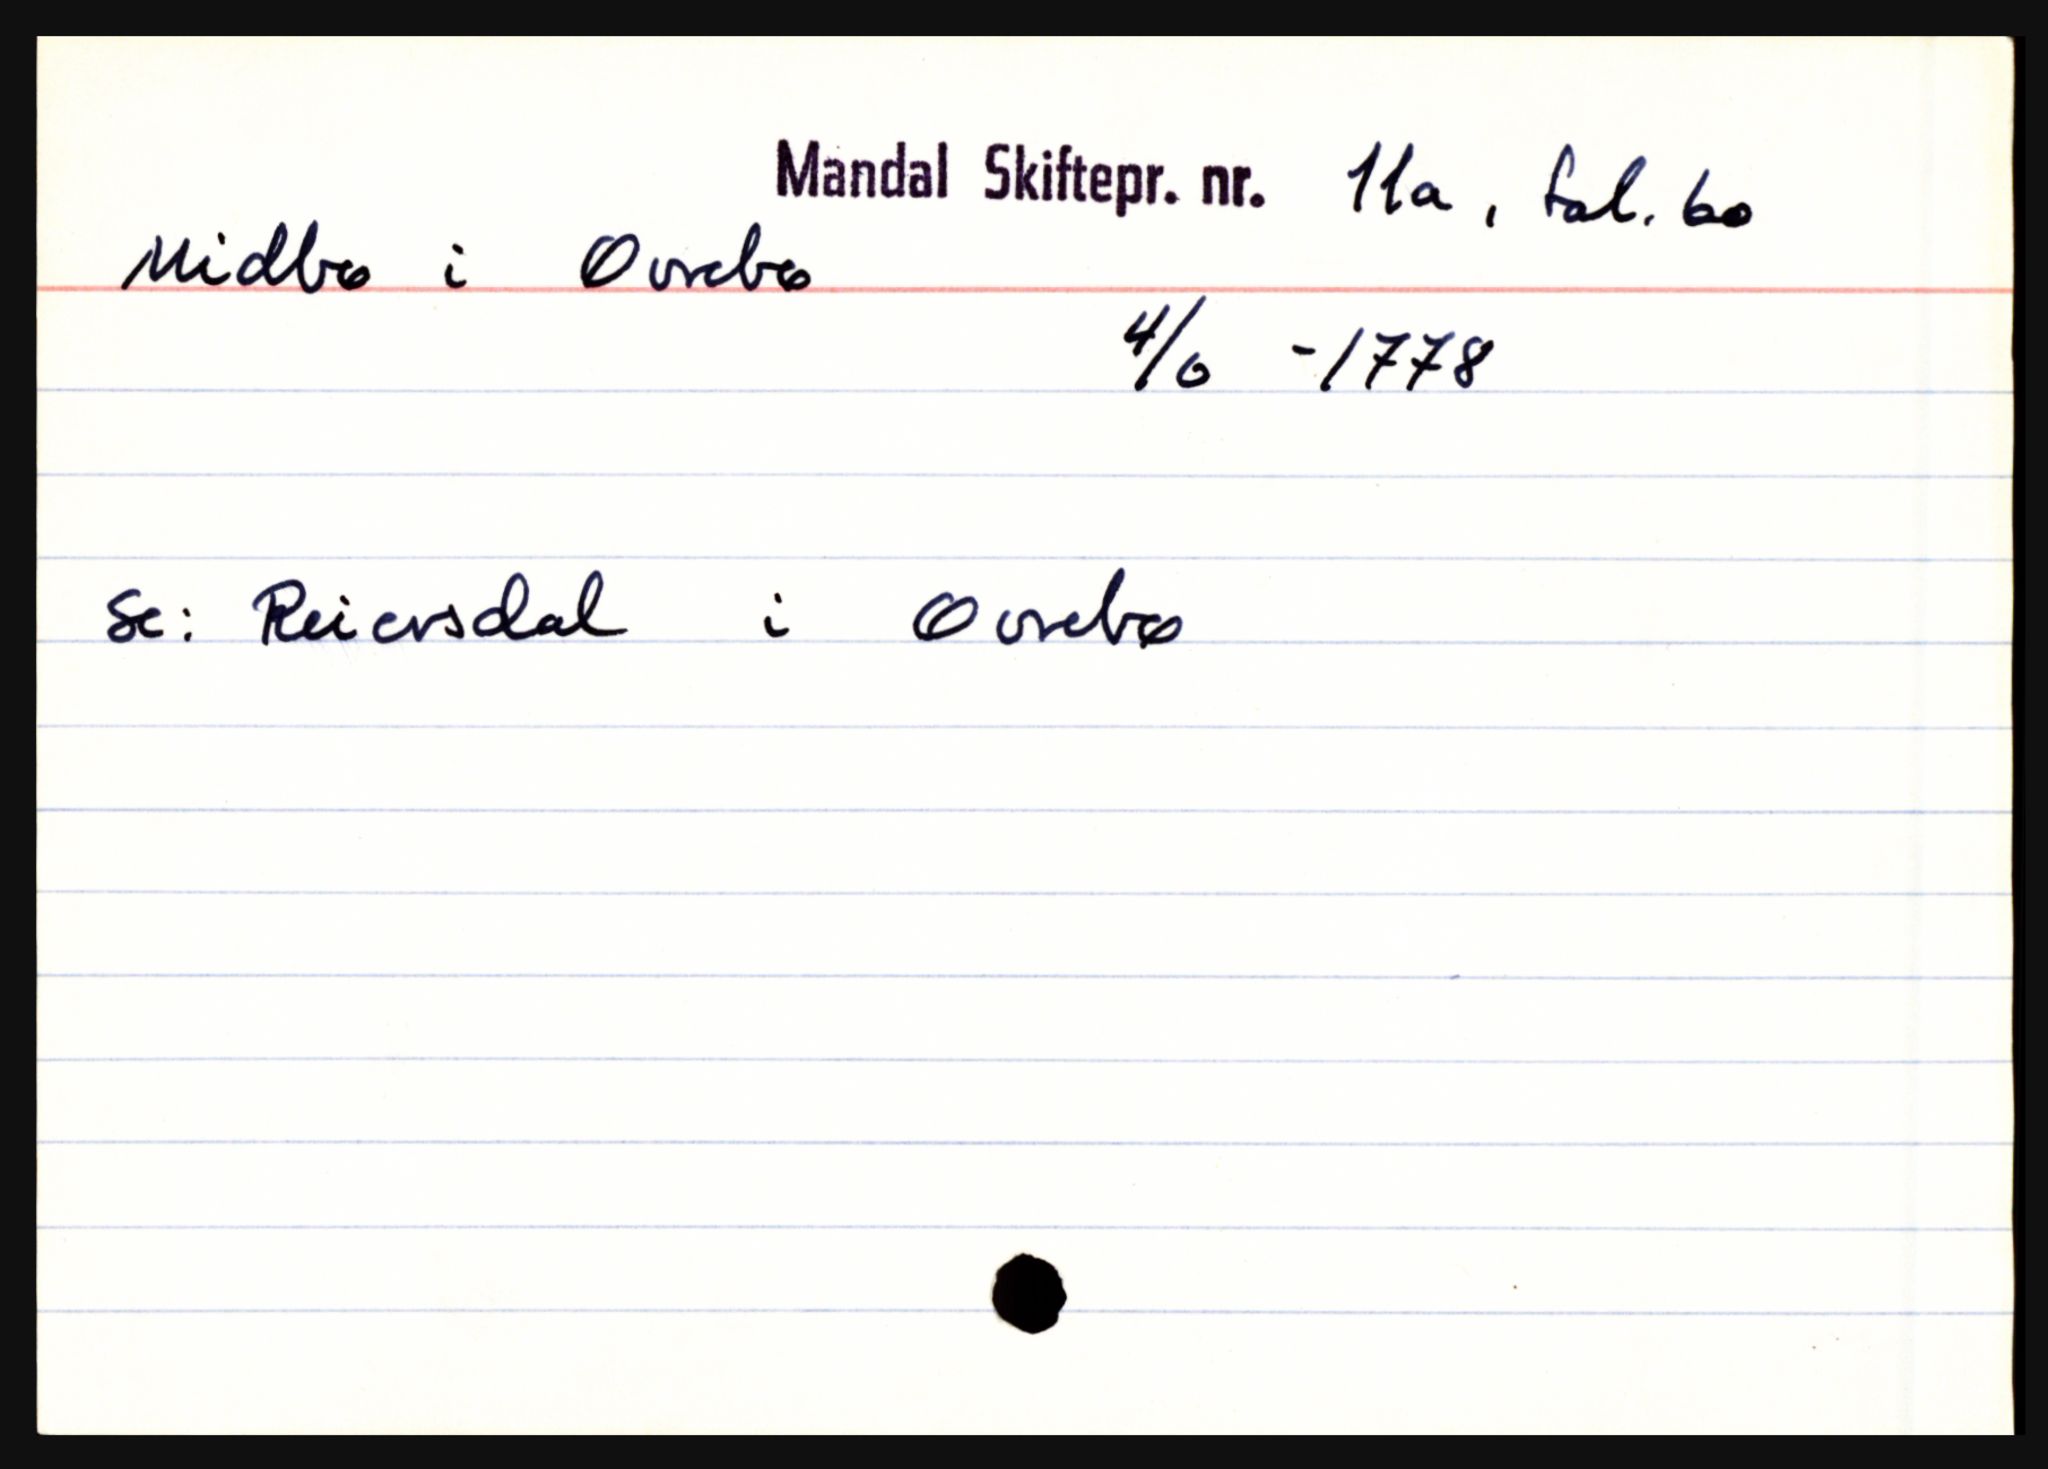 Mandal Skiftepr. nr. 11a, fol. 60
Midbø i Øvrebø
4/6 -1778
Se: Reiersdal i Øvrebø